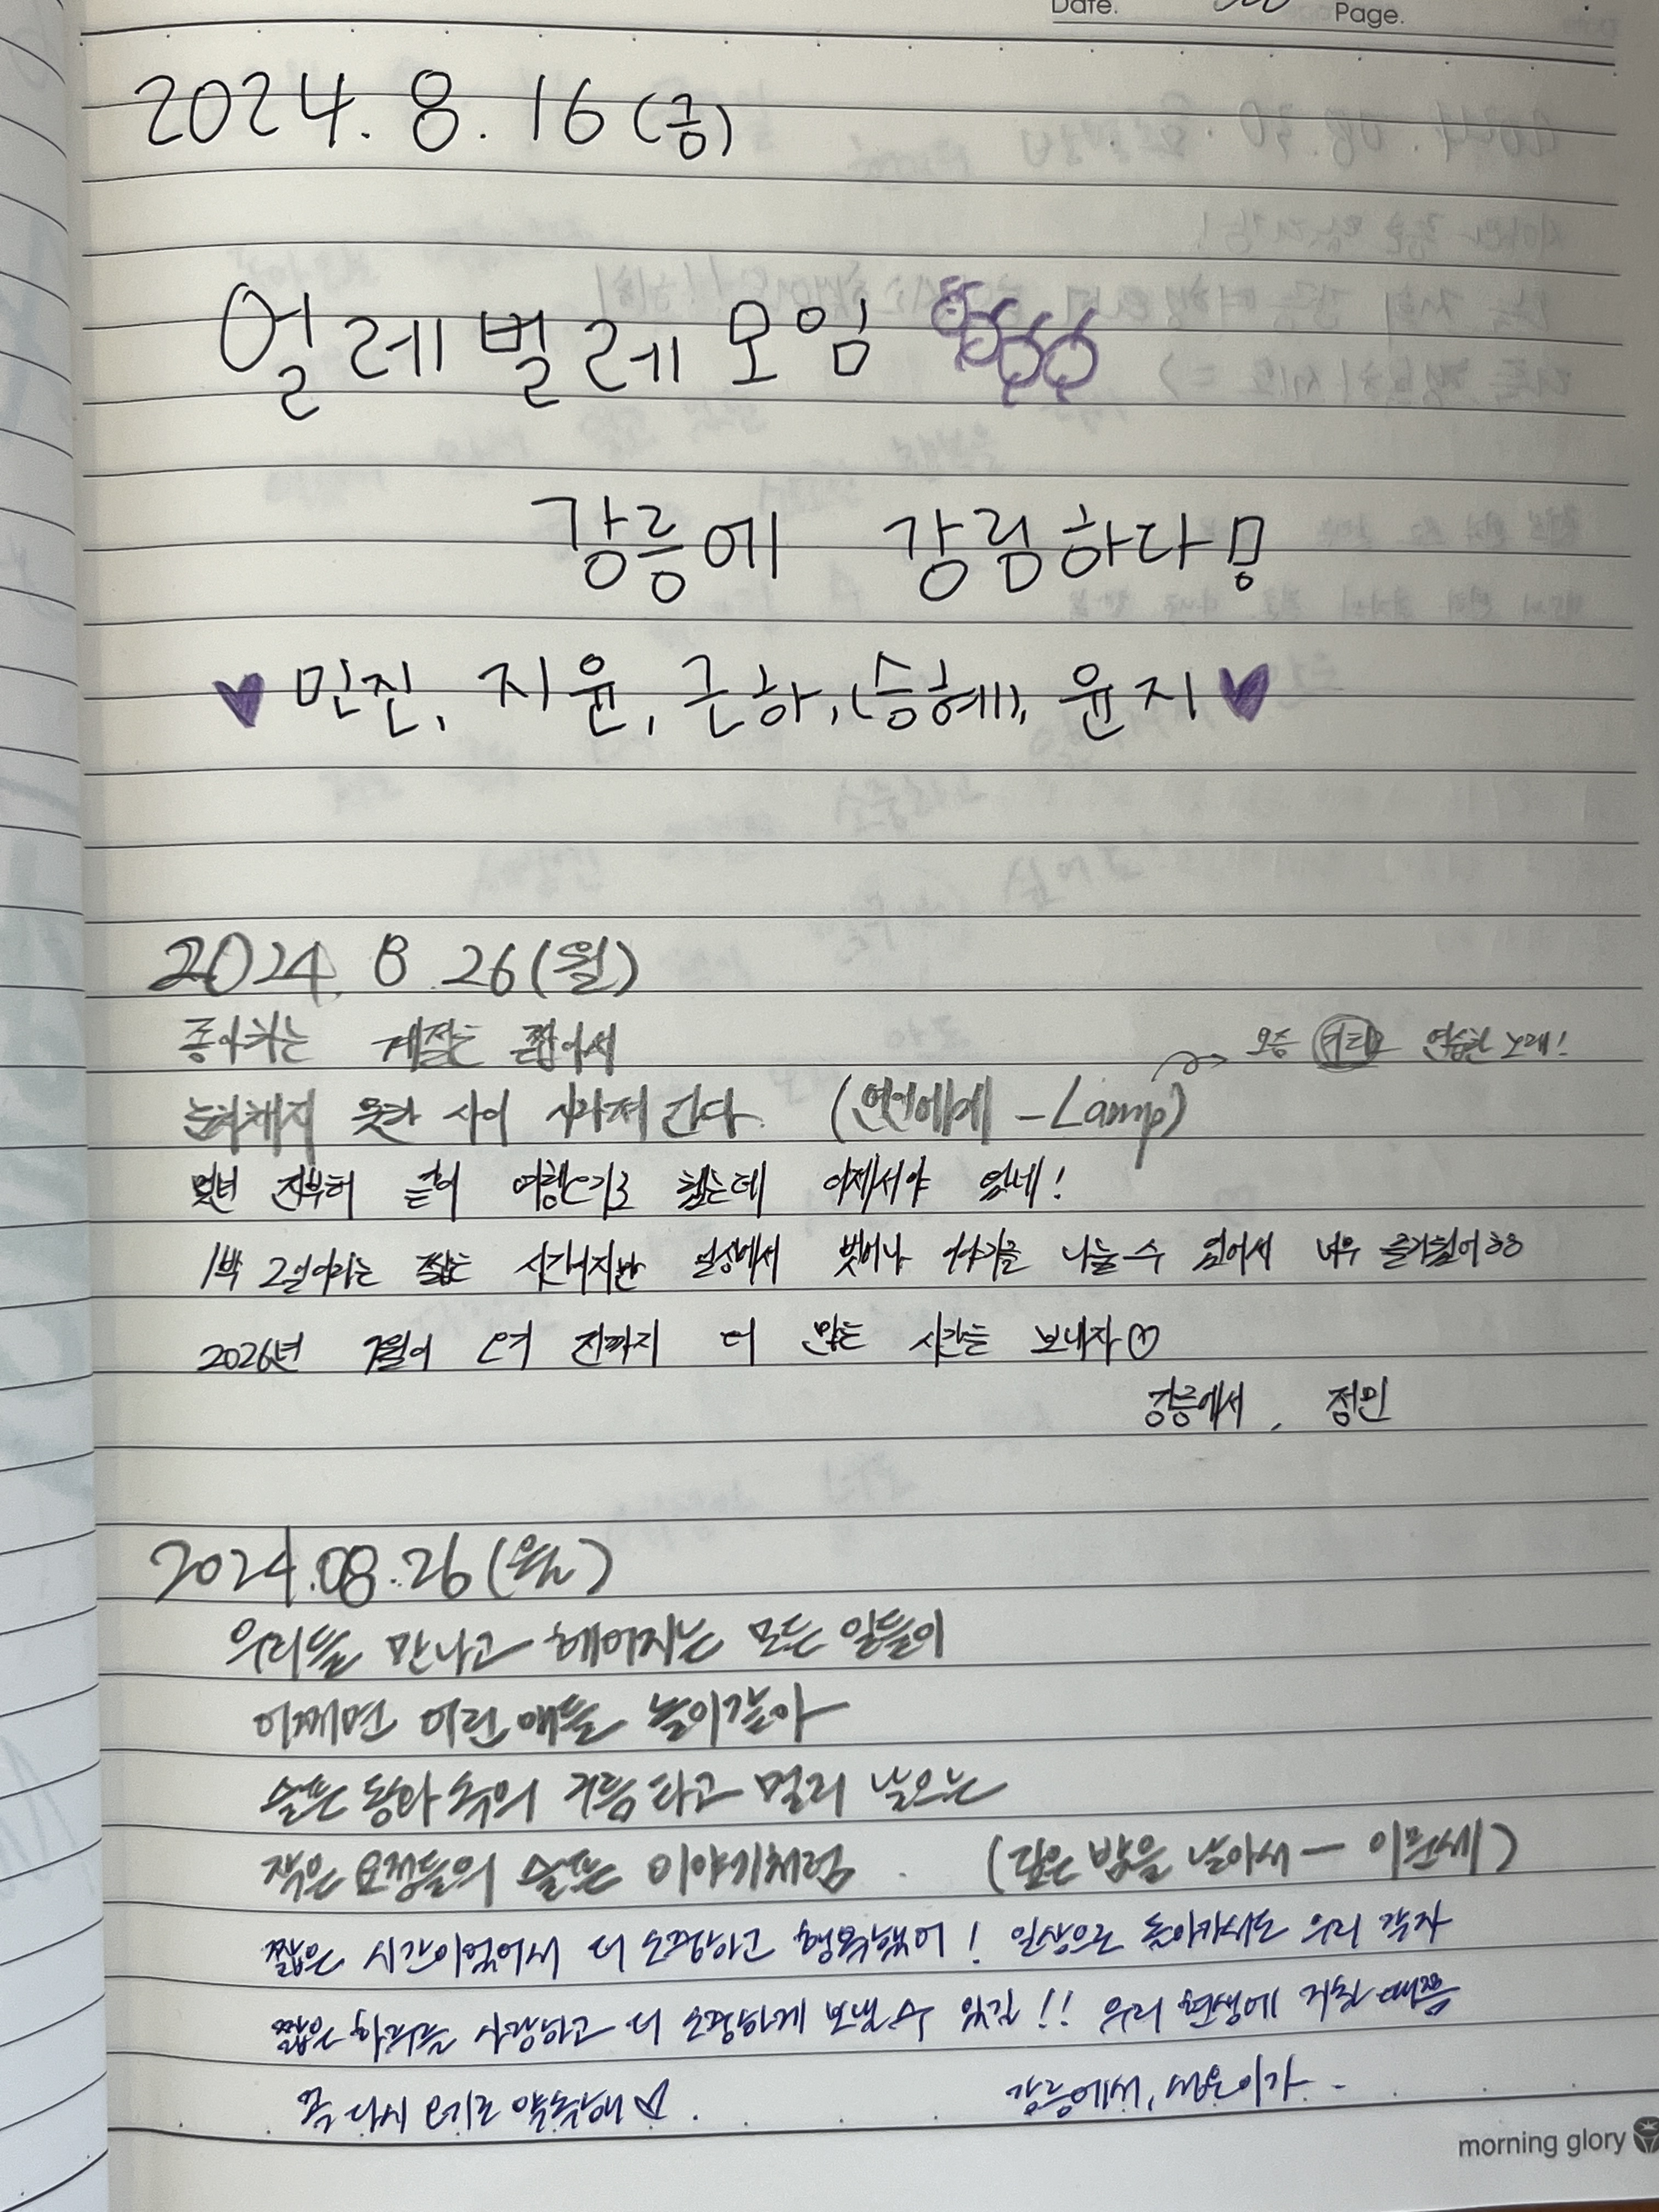 Date. Page.
2024. 8. 16 (금)
얼레벌레 모임
강릉에 강림하다!
민진, 지윤, 근하, (승혜), 윤지
2024. 8. 26 (월)
좋아하는 계절은 짧아서
요즘 연습한 노래!
눈치채지 못한 사이 사라져 간다. (연연에게 - Lamp)
몇년 전부터 같이 여행오기로 했는데 이제서야 왔네!
1박 2일이라는 짧은 시간이지만 일상에서 벗어나 이야기를 나눌 수 있어서 너무 즐거웠어ㅎㅎ
2026년 7월이 오기 전까지 더 많은 시간을 보내자♡
강릉에서, 정민
2024.08.26 (월)
우리들 만나고 헤어지는 모든 일들이
어쩌면 어린 애들 놀이같아
슬픈 동화 속의 구름 타고 멀리 날으는
작은 요정들의 슬픈 이야기처럼. (깊은 밤을 날아서 - 이문세)
짧은 시간이었어서 더 소중하고 행복했어! 일상으로 돌아가서도 우리 각자
짧은 하루를 사랑하고 더 소중하게 보낼 수 있길!! 우리 현생에 지친 때쯤
꼭 다시 오기로 약속해♡.
강릉에서,
morning glory